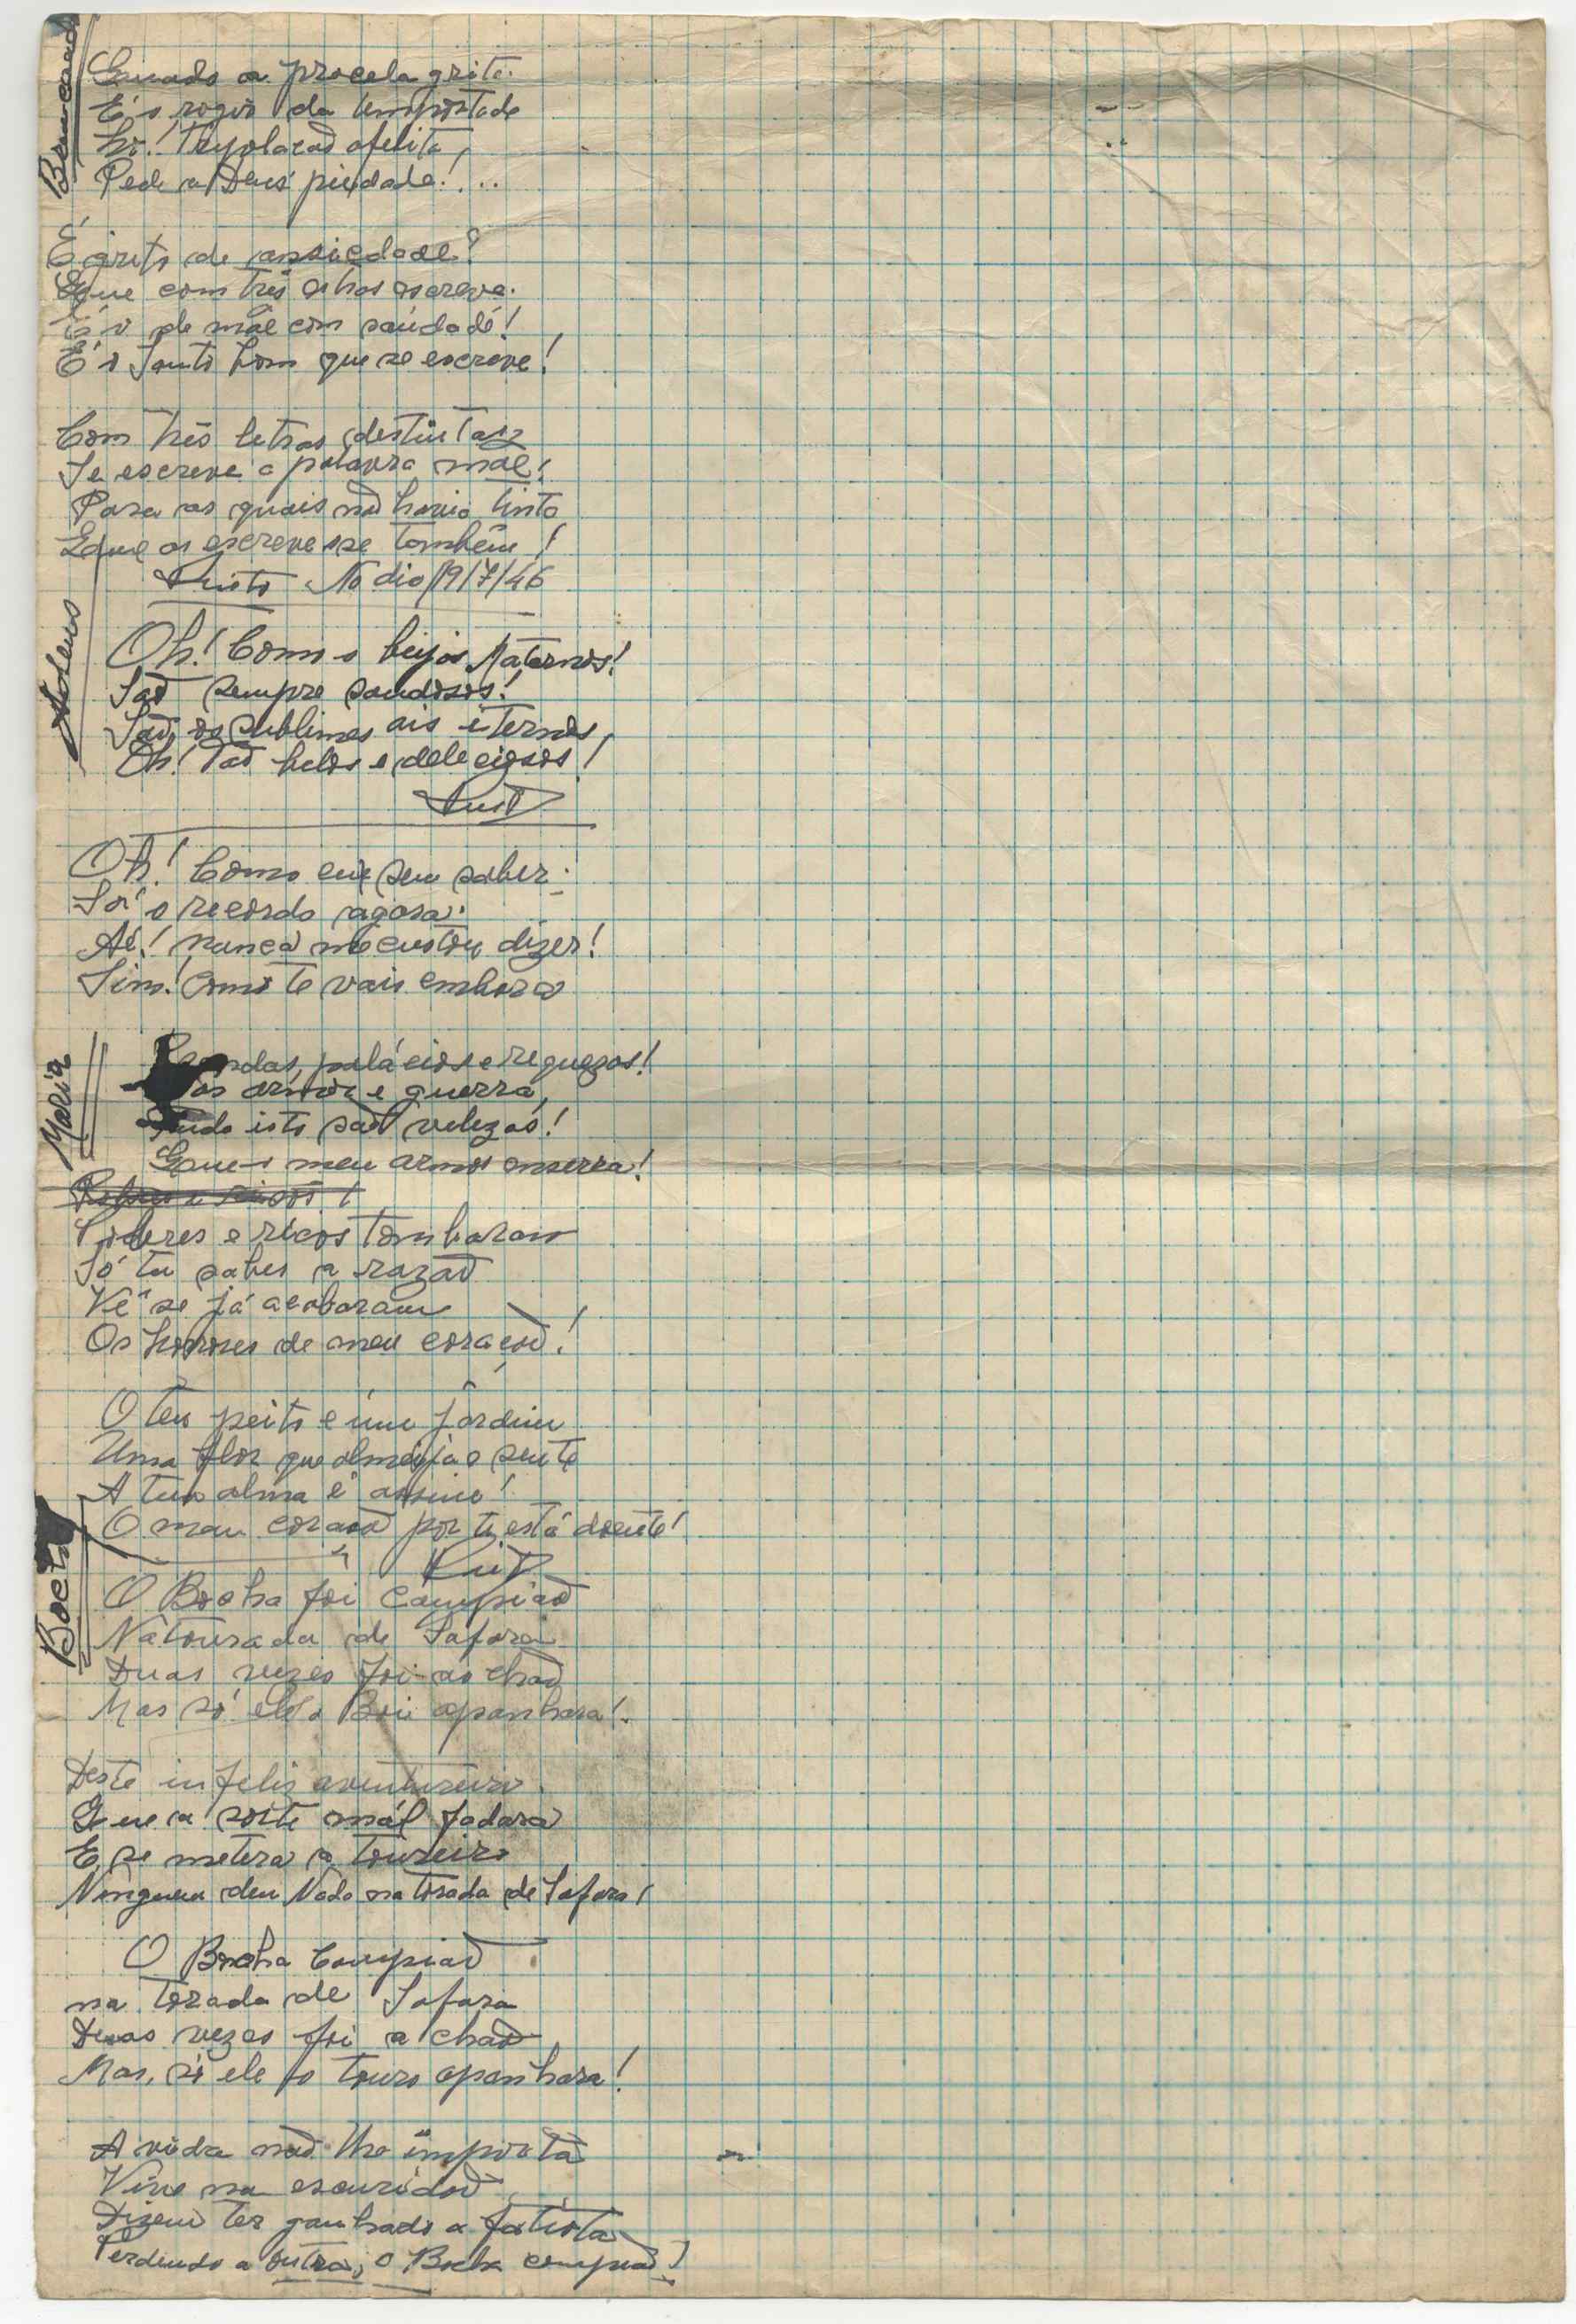 Quando a procela grita.
É o rogir da tempestade
Pede a Deus piedade!...
É grito de ansiedade?
Que com três letras escreve.
É o de mãe com saúdade!
É o Santo nom que se escreve!
Com três letras destintas
Se escreve a palavra mãe!
Para as quais não havia tinta
Que as escrevesse tambêm!
No dia 19/7/46
Oh! Como o beijos Maternos!
São sempre saudosos!
São, os sublimes ais eternos,
Oh! Tão belos e deleciosos!
Oh! Como eu sem saber.
Só o recordo agora.
Ai! nunca me custou dizer!
Sim! como te vais embora
Maria
palácios e requezas!
amor e guerra,
Tudo isto são velezas!
Que o meu amor enserra!
Poderes e ricos tombaram
Só tu sabes a razão
Vê se já acabaram
Os horrores de meu coração!
O teu peito e úm jardim
Uma flor que almeja e sente
A tua alma é assim!
O meu coração por ti está doente!
O Bocha foi Campião
Na tourada de Safara
Duas vezes foi ao chão
Mas só ele o Boi apanhara!
Deste infeliz aventureiro
Que a sorte mál fadara
E se metera a toureiro
Ninguem deu Nada na torada de Safara!
O Bocha Campião
na torada de Safara
Duas vezes foi a chão
Mas, só ele o touro apanhara!
A vida não lhe importa
Vive na escuridão
Dizem ter ganhado a fatiota
Perdendo a outra, o Bocha campião!